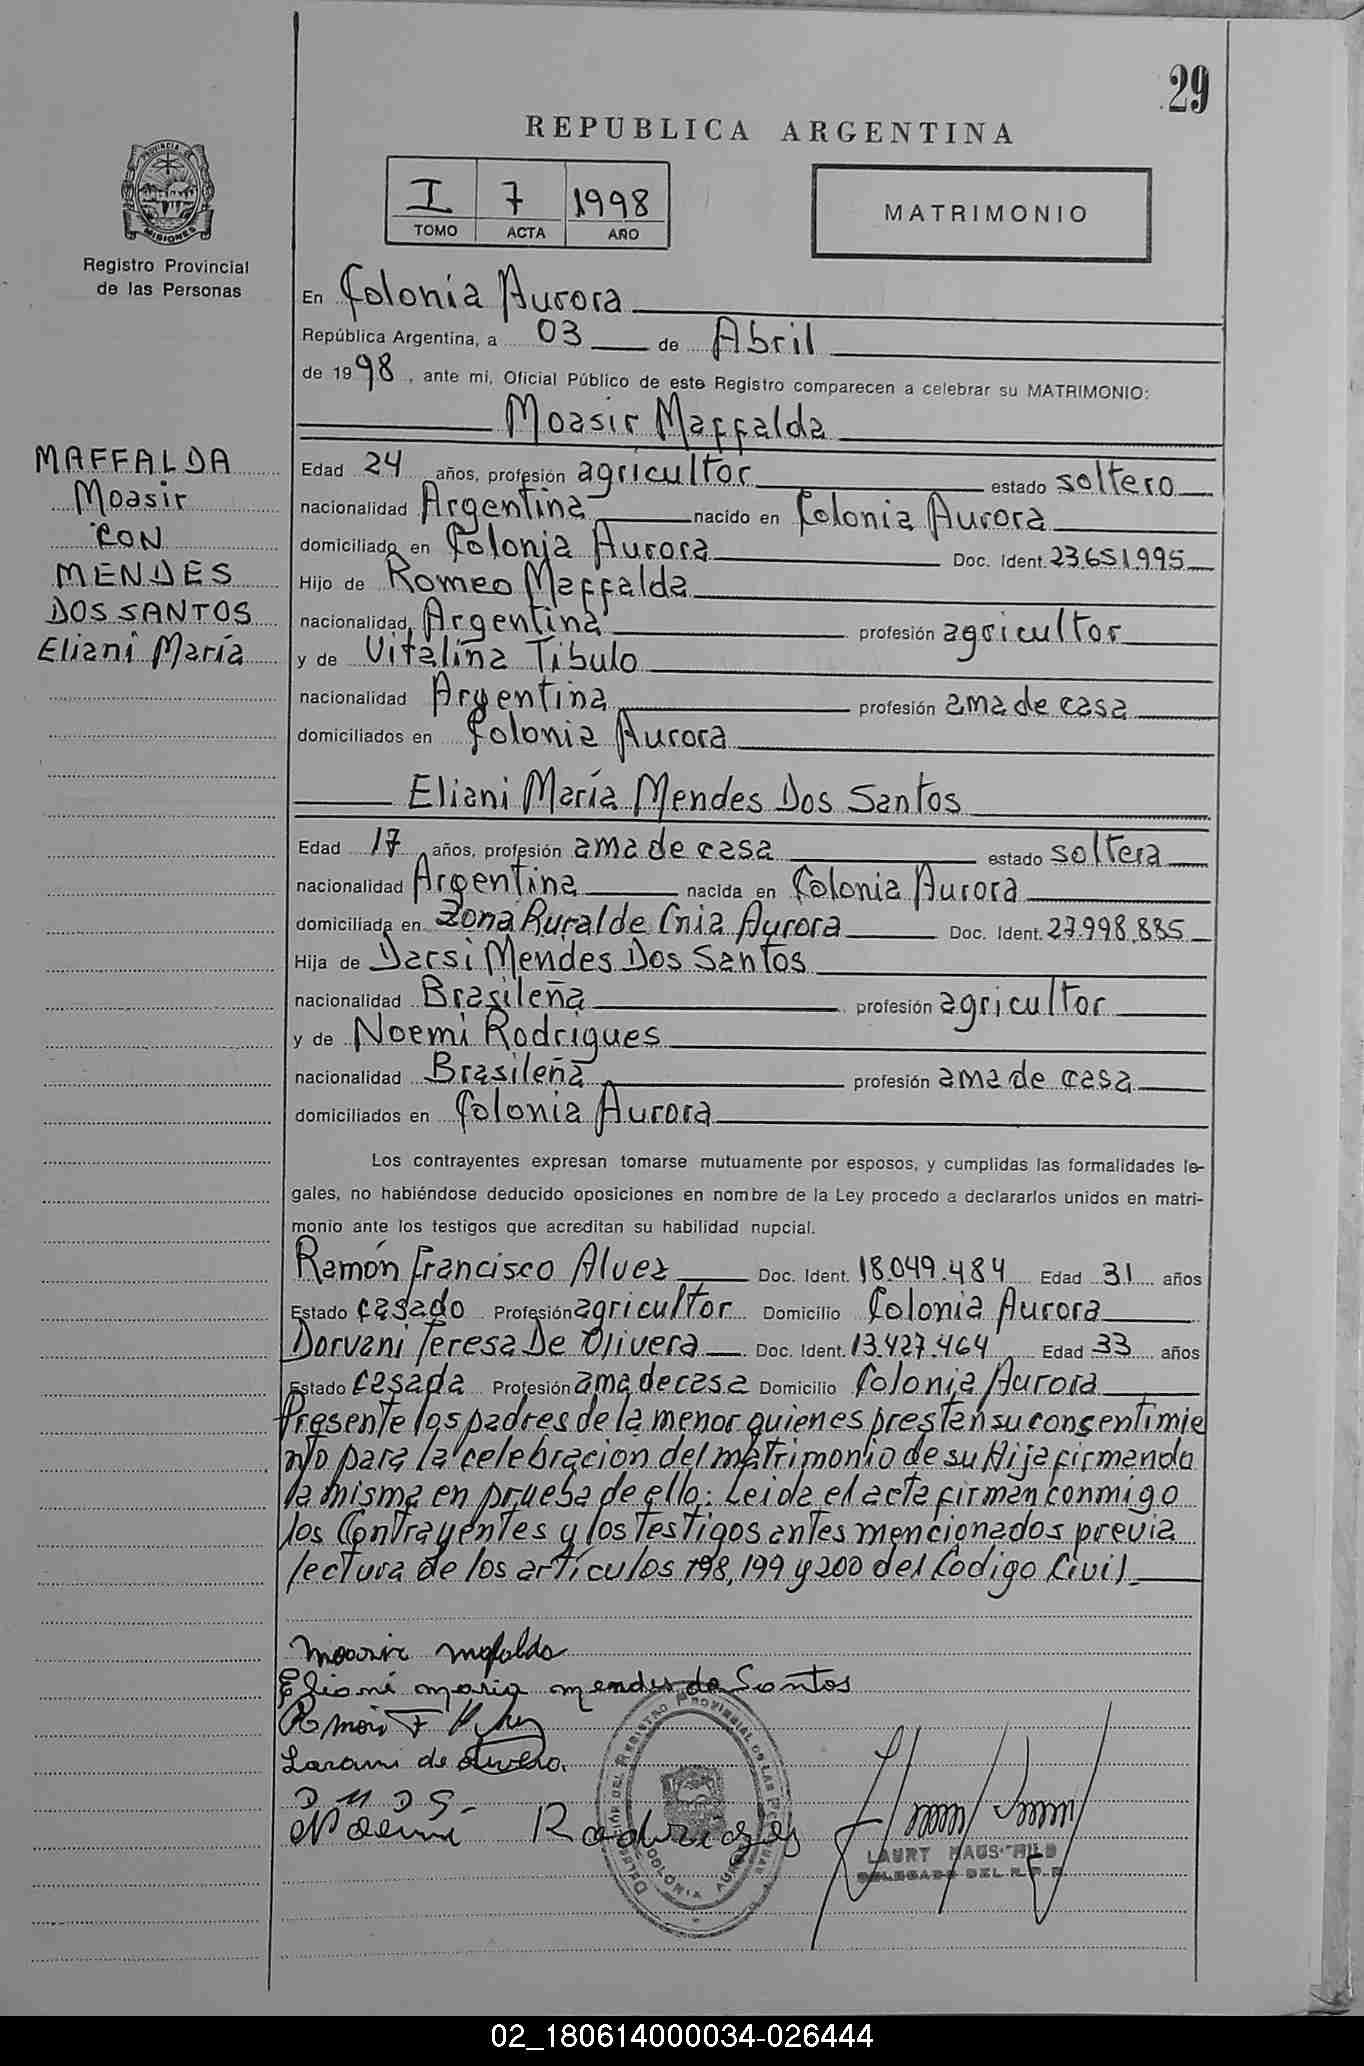 29
REPUBLICA ARGENTINA
I 7 1998
TOMO ACTA AÑO
MATRIMONIO
PROVINCIA DE
MISIONES
Registro Provincial
de las Personas
MAFFALDA
Moasir
CON
MENDES
DOS SANTOS
Eliani María
En Colonia Aurora
República Argentina, a 03 de Abril
de 1998, ante mí, Oficial Público de este Registro comparecen a celebrar su MATRIMONIO:
Moasir Maffalda
Edad 24 años, profesión agricultor estado soltero
nacionalidad Argentina nacido en Colonia Aurora
domiciliado en Colonia Aurora Doc. Ident. 23.651.995
Hijo de Romeo Maffalda
nacionalidad Argentina profesión agricultor
y de Vitalina Tibulo
nacionalidad Argentina profesión ama de casa
domiciliados en Colonia Aurora
Eliani María Mendes Dos Santos
Edad 17 años, profesión ama de casa estado soltera
nacionalidad Argentina nacida en Colonia Aurora
domiciliada en Zona Rural de Cnia Aurora Doc. Ident. 27.998.885
Hija de Darsi Mendes Dos Santos
nacionalidad Brasileña profesión agricultor
y de Noemi Rodrigues
nacionalidad Brasileña profesión ama de casa
domiciliados en Colonia Aurora
Los contrayentes expresan tomarse mutuamente por esposos, y cumplidas las formalidades le-
gales, no habiéndose deducido oposiciones en nombre de la Ley procedo a declararlos unidos en matri-
monio ante los testigos que acreditan su habilidad nupcial.
Ramón Francisco Alvez Doc. Ident. 18.049.484 Edad 31 años
Estado casado Profesión agricultor Domicilio Colonia Aurora
Dorvani Teresa De Olivera Doc. Ident. 13.427.464 Edad 33 años
Estado casada Profesión ama de casa Domicilio Colonia Aurora
Presente los padres de la menor quienes prestan su consentimie
nto para la celebración del matrimonio de su Hija firmando
la misma en prueba de ello: Leida el acta firman conmigo
los Contrayentes y los Testigos antes mencionados previa
lectura de los artículos 198, 199 y 200 del Codigo Civil.
Moasir Mafalda
Eliani maria mendes do Santos
Ramón F
de Olivera.
D M D S.
Noemi Rodrigues
DELEGACIÓN DEL REGISTRO PROVINCIAL DE LAS PERSONAS
COLONIA AURORA
LAURY
DELEGADO DEL R.P.P.
02_180614000034-026444